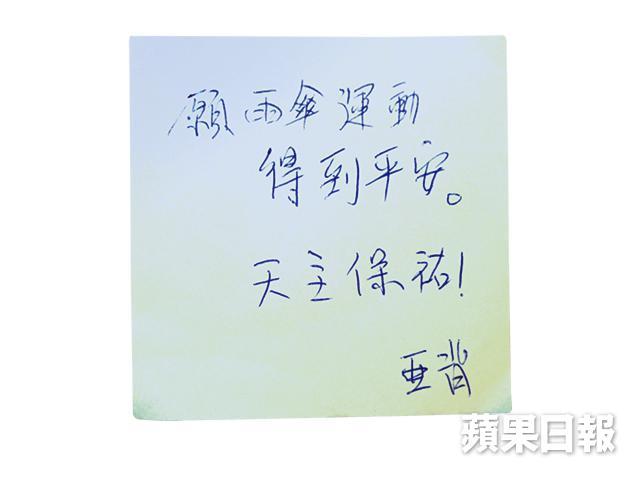 願雨傘運動
得到平安。
天主保祐!
亜背
蘋果日報